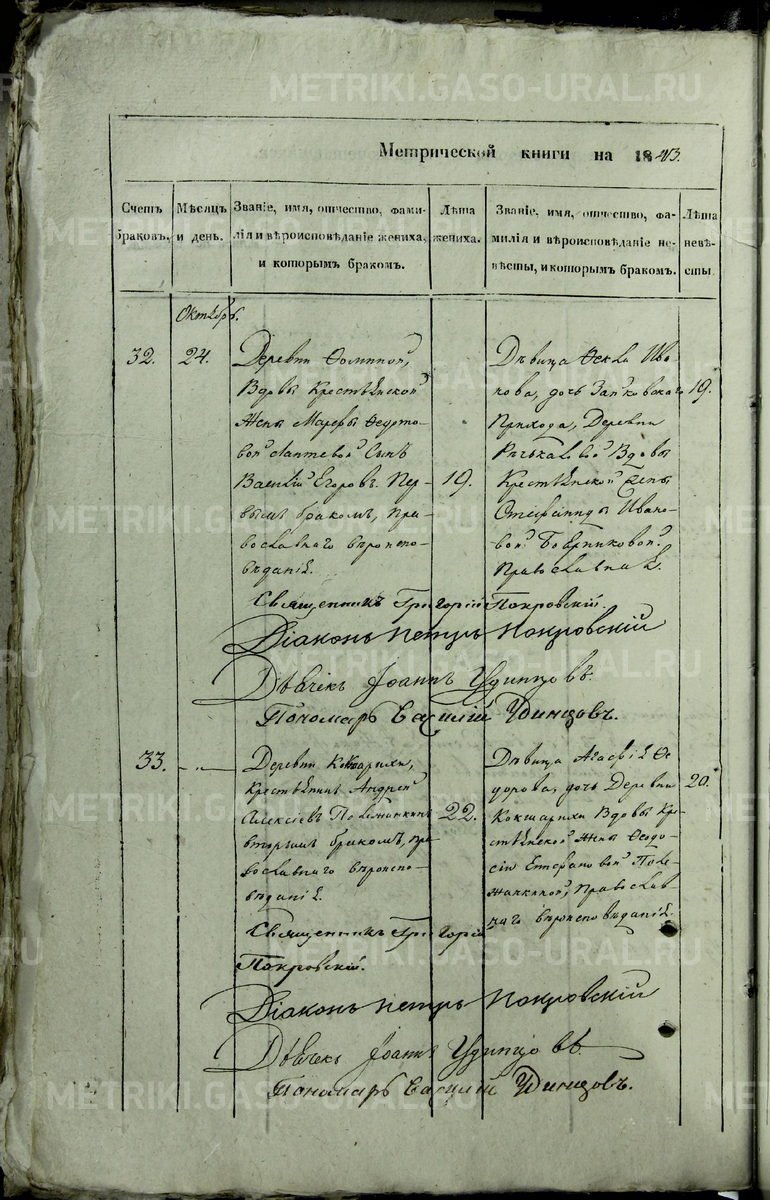 METRIKI.GASO-URAL.RU
Метрической книги на 1843.
Счетъ браковъ.
Мѣсяцъ и день.
Званіе, имя, отчество, фами-
лія и вѣроисповѣданіе жениха,
и которымъ бракомъ.
Лѣта жениха.
Званіе, имя, отчество, фа-
милія и вѣроисповѣданіе не-
вѣсты, и которымъ бракомъ.
Лѣта невѣ-
сты.
Октябрь.
32.
24.
Деревни Ѳоминой,
Вдовы Крестьянской
Жены Марѳы
вой Лаптевой Сынъ
Василій Егоровъ. Пер-
вымъ бракомъ, Пра-
вославнаго вѣроиспо-
вѣданія.
19.
Дѣвица Ѳекла Ива-
нова, дочь
Прихода, Деревни
Вдовы
Крестьянской Жены
Стефаниды Ивано-
вой
Православная.
19.
Священникъ Григорій Покровскій.
Діаконъ Петръ Покровскій
Дьячекъ Іоаннъ Удинцовъ.
Пономарь Василій Удинцовъ.
33.
Деревни Кокшарихи,
Крестьянинъ Андрей
Алексіевъ
вторымъ бракомъ, пра-
вославнаго вѣроиспо-
вѣданія.
22.
Дѣвица Агафія Ѳе-
дорова, дочь Деревни
Кокшарихи Вдовы Кре-
стьянской Жены Ѳеодо-
сіи Стефановой
Православ-
наго вѣроисповѣданія.
20.
Священникъ Григорій
Покровскій.
Діаконъ Петръ Покровскій
Дьячекъ Іоаннъ Удинцовъ.
Пономарь Василій Удинцовъ.